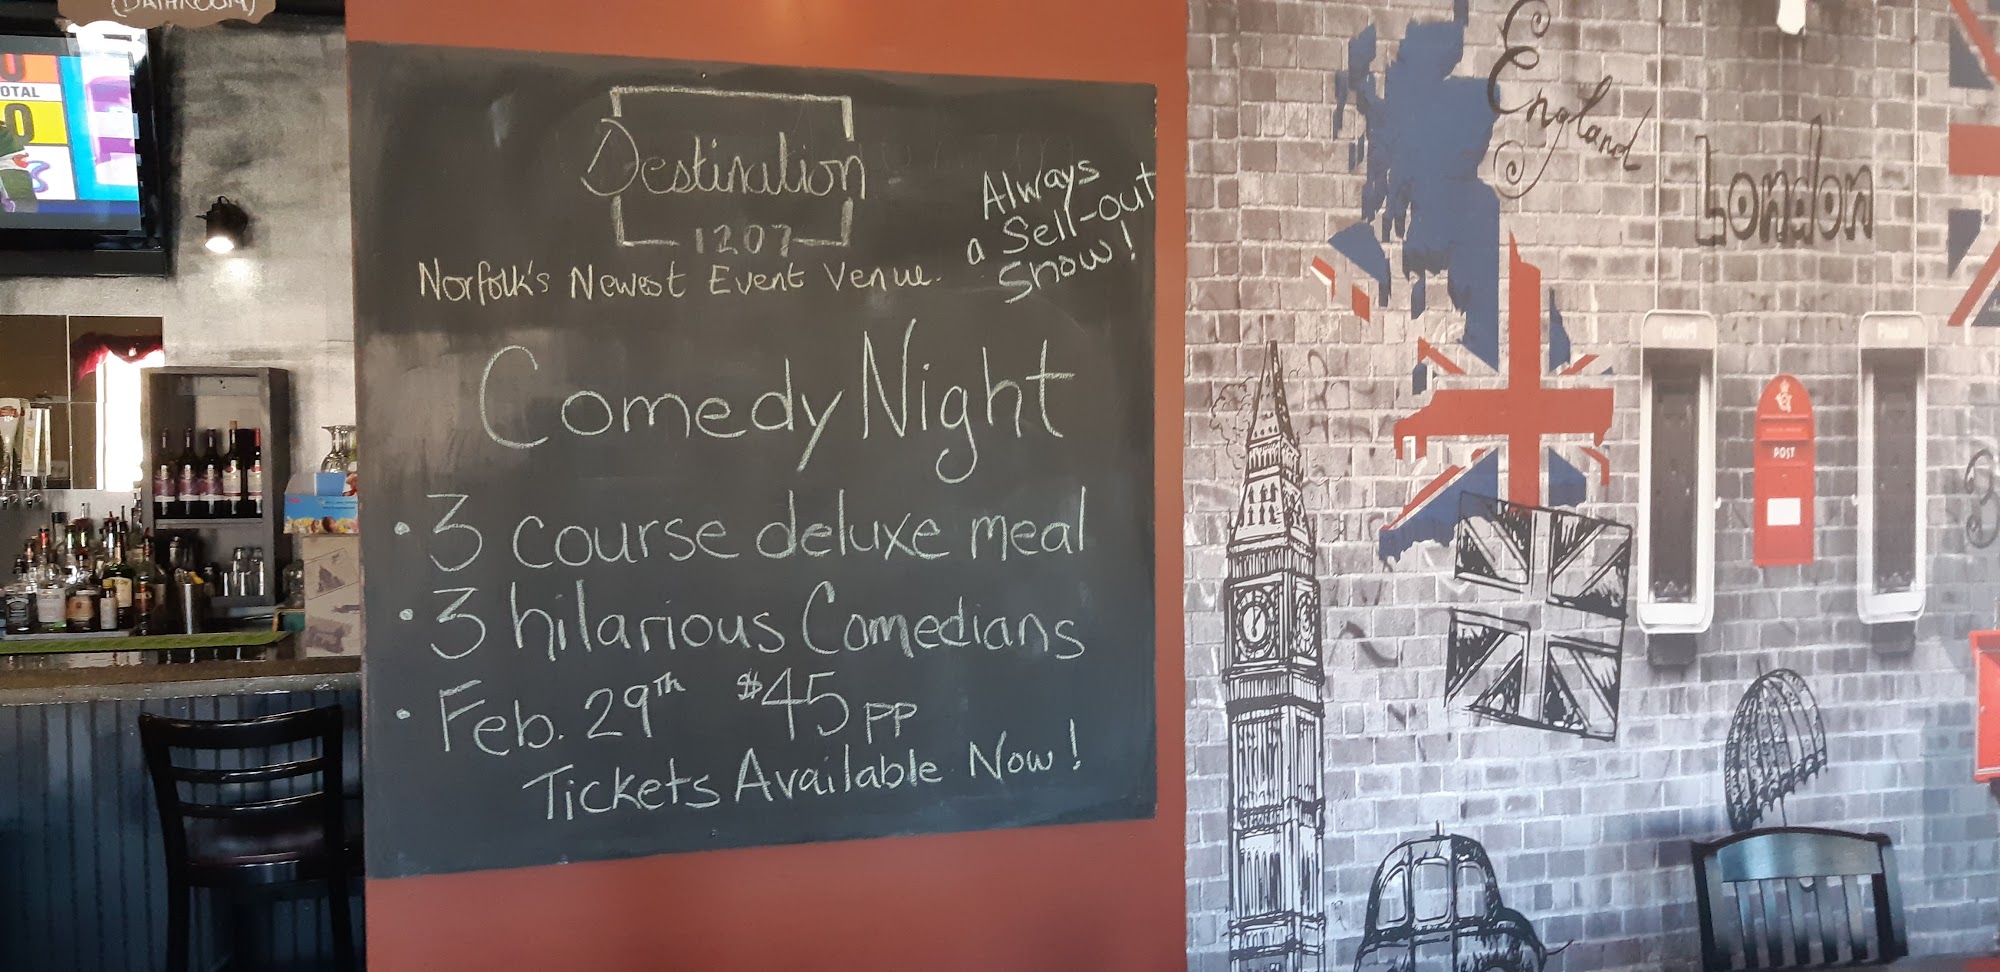 (BATHROOM)
OTAL
0
Destination
1207
Norfolk's Newest Event Venue.
Always
a Sell-out
Show!
Comedy Night
• 3 course deluxe meal
• 3 hilarious Comedians
• Feb. 29th $45 pp
Tickets Available Now!
England
London
POST